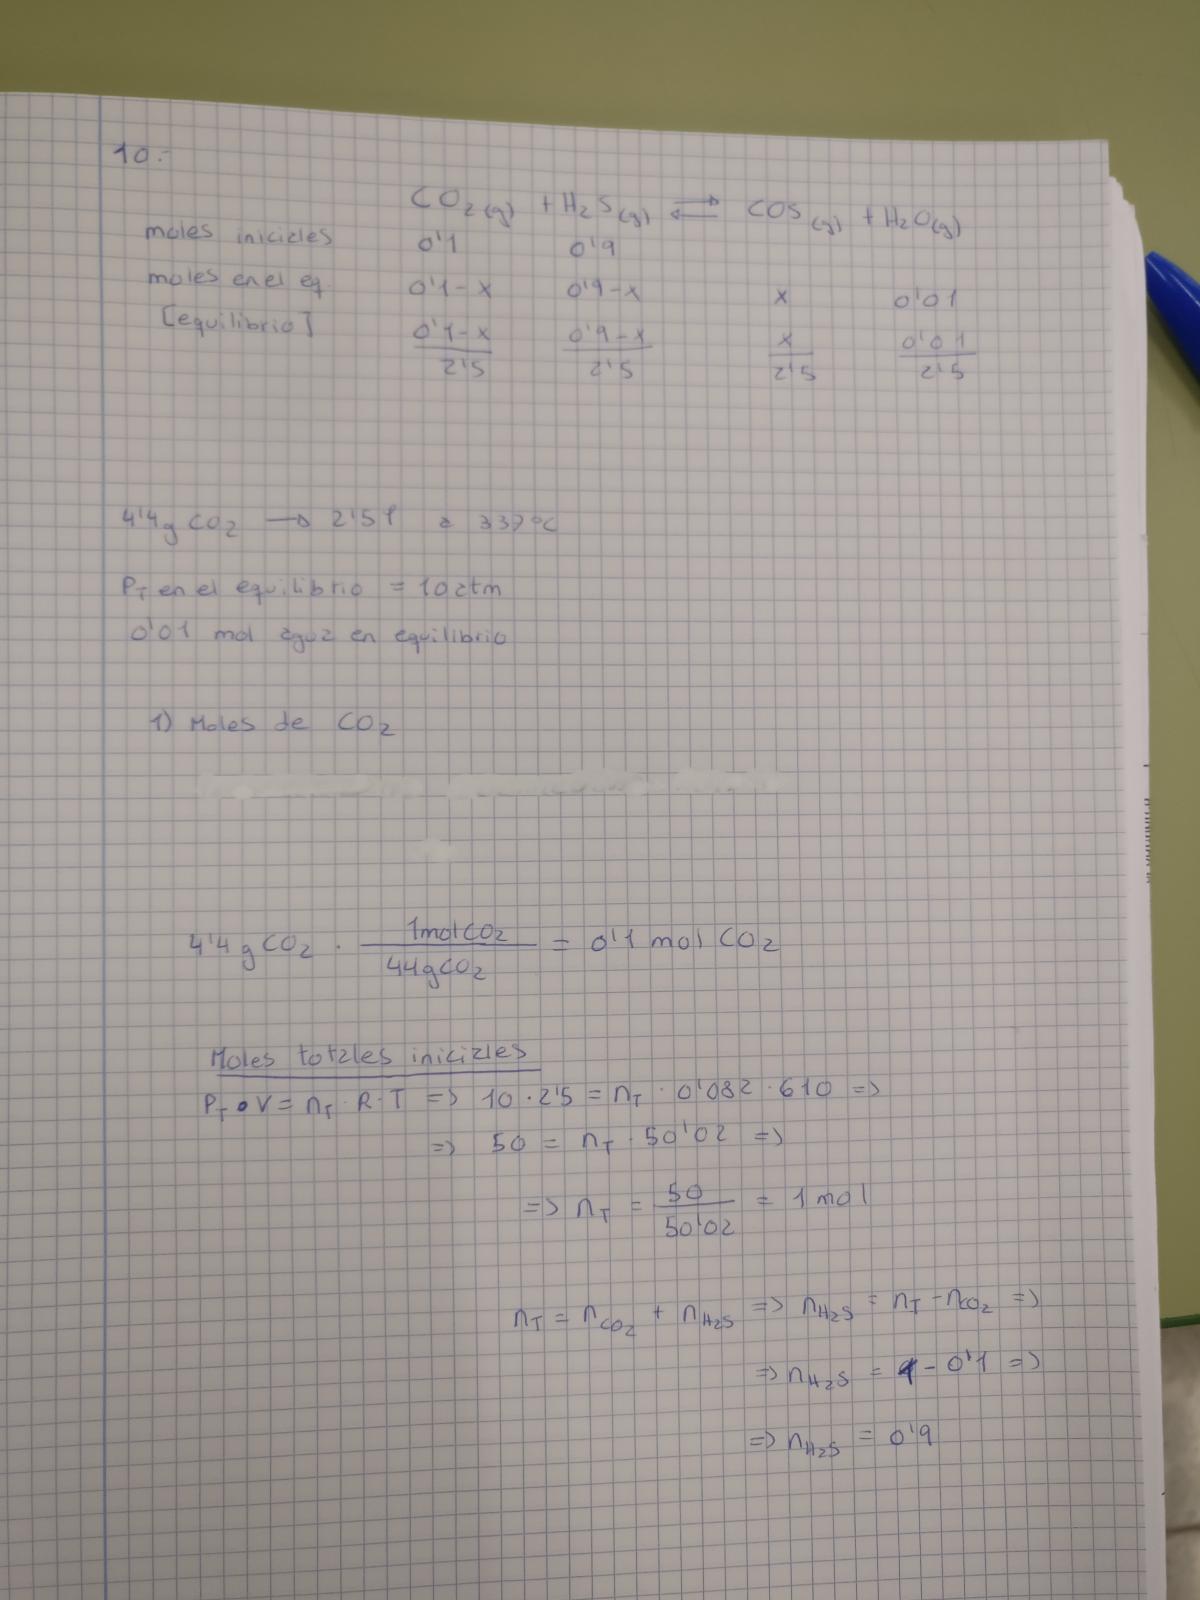 10.-
CO2(g) + H2S(g) ⇌ COS(g) + H2O(g)
moles iniciales 0'1 0'9
moles en el eq. 0'1-x 0'9-x x 0'01
[equilibrio] 0'1-x/2'5 0'9-x/2'5 x/2'5 0'01/2'5
4'4g CO2 → 2'5 l a 337ºC
PT en el equilibrio = 10 atm
0'01 mol agua en equilibrio
1) Moles de CO2
4'4 g CO2 · 1mol CO2/44g CO2 = 0'1 mol CO2
Moles totales iniciales
PT • V = nT · R · T => 10 · 2'5 = nT · 0'082 · 610 =>
=> 50 = nT · 50'02 =>
=> nT = 50/50'02 = 1 mol
nT = nCO2 + nH2S => nH2S = nT - nCO2 =>
=> nH2S = 1 - 0'1 =>
=> nH2S = 0'9